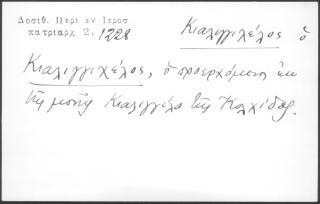 Δοσιθ. Περι εν Ιεροσ
πατριαρχ 2, 1228
Κιαλιγγιχέλος ὁ
Κιαλιγγιχέλος, ὁ προερχόμενος ἐκ
τῆς μονῆς Κιαλιγγέλα τῆς Κολχίδος.